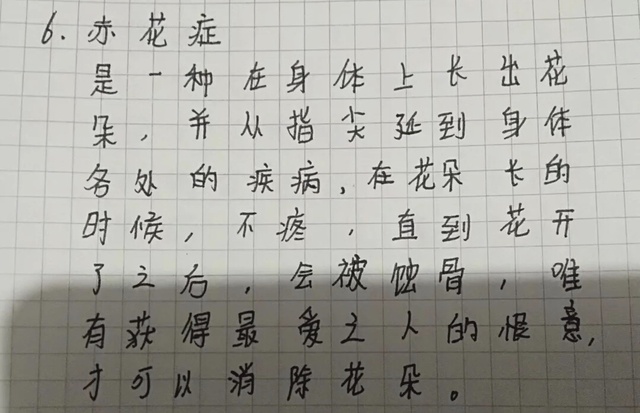 6. 赤花症
是一种在身体上长出花
朵，并从指尖延到身体
各处的疾病，在花朵长的
时候，不疼，直到花开
了之后，会被蚀骨，唯
有获得最爱之人的恨意，
才可以消除花朵。